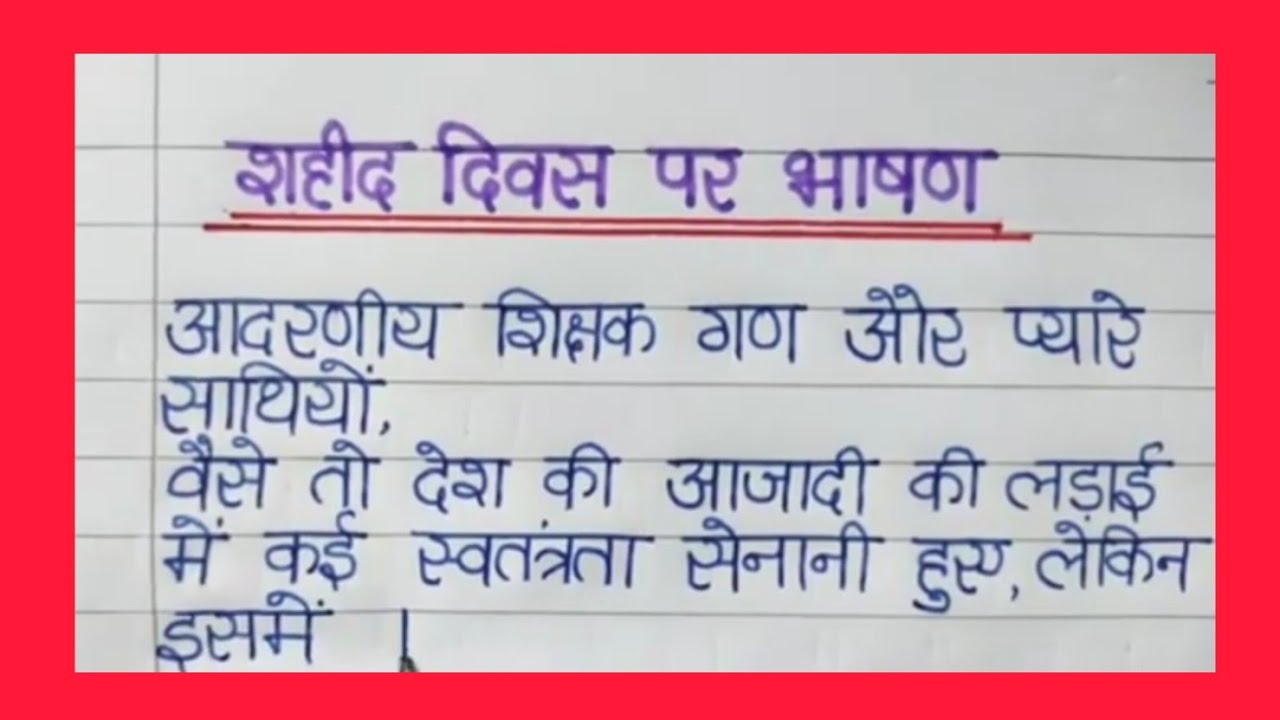 शहीद दिवस पर भाषण
आदरणीय शिक्षक गण और प्यारे
साथियों,
वैसे तो देश की आजादी की लड़ाई
में कई स्वतंत्रता सेनानी हुए, लेकिन
इसमें